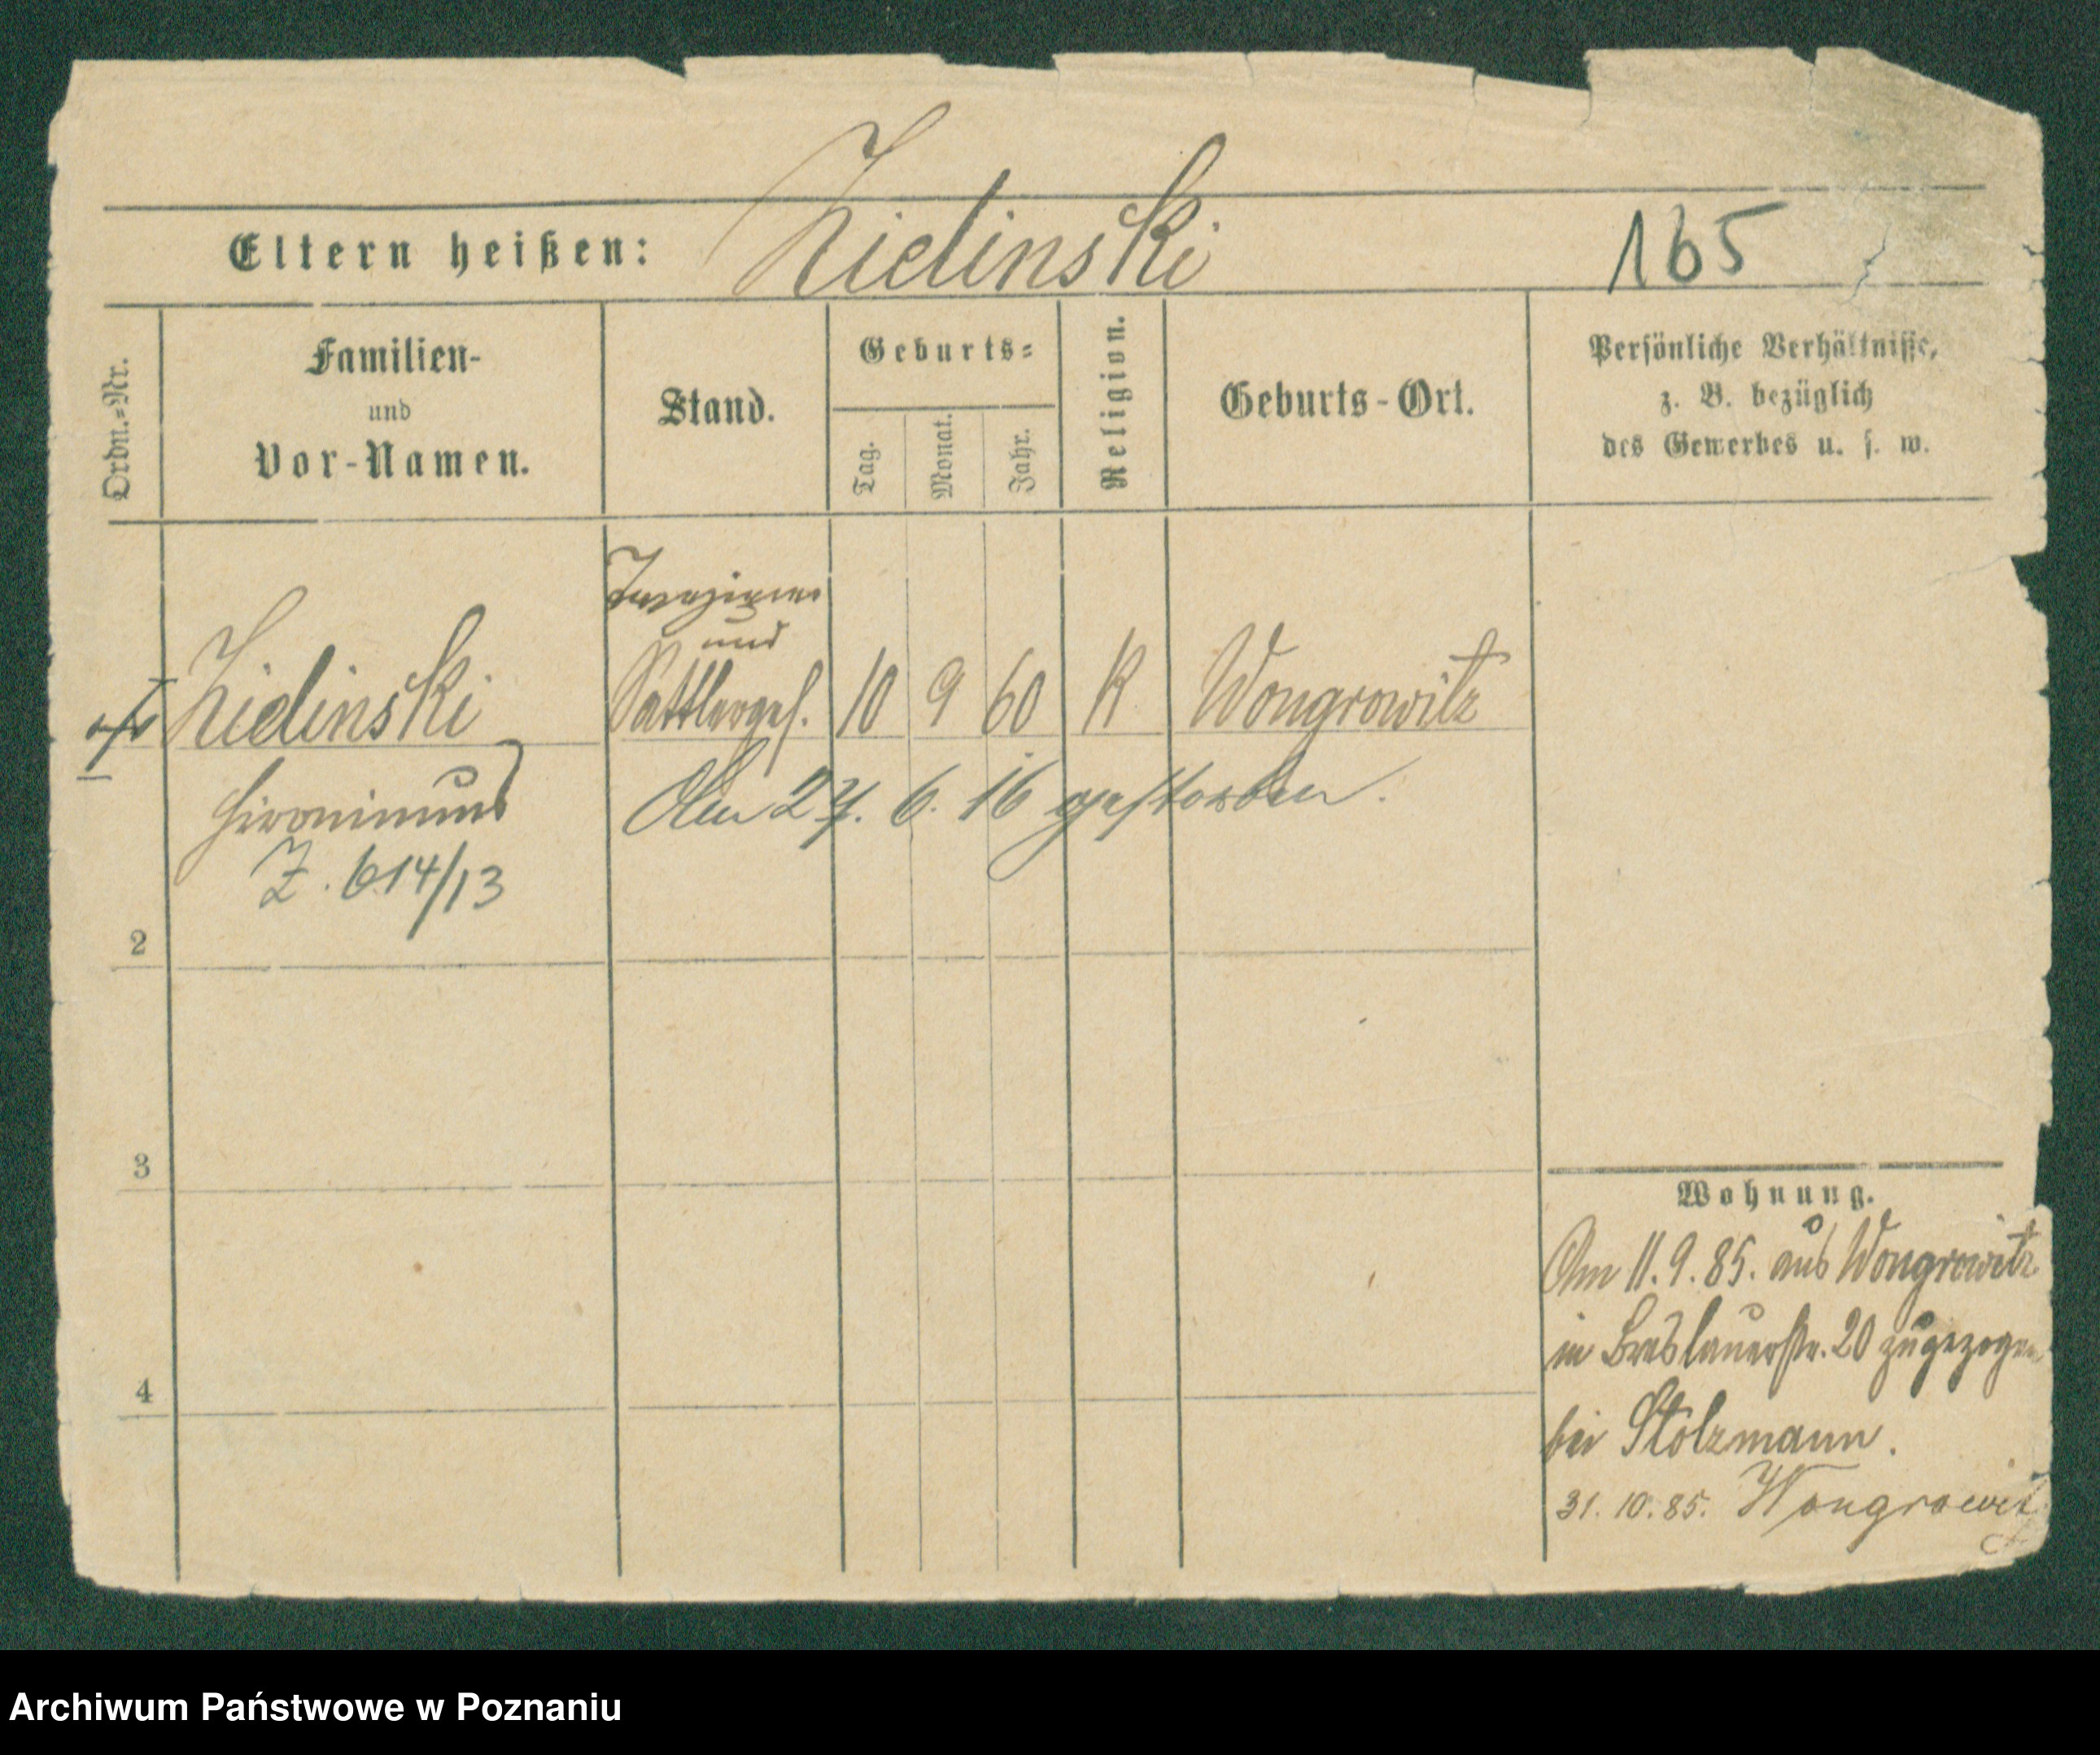 Zielinski
Eltern heißen:
165
Ordn.=Nr.
Familien-
und
Vor-Namen.
Stand.
Geburts=
Tag.
Monat.
Jahr.
Religion.
Geburts-Ort.
Persönliche Verhältnisse,
z. B. bezüglich
des Gewerbes u. s. w.
Tapezierer
und
Zielinski Sattlerges. 10 9 60 K Wongrowitz
Hieronimus
Am 27. 6. 16 gestorben.
Z. 614/13
2
3
4
Wohnung.
Am 11. 9. 85. aus Wongrowitz
in Breslauerstr. 20 zugezogen
bei Stolzmann.
31. 10. 85. Wongrowitz
Archiwum Państwowe w Poznaniu